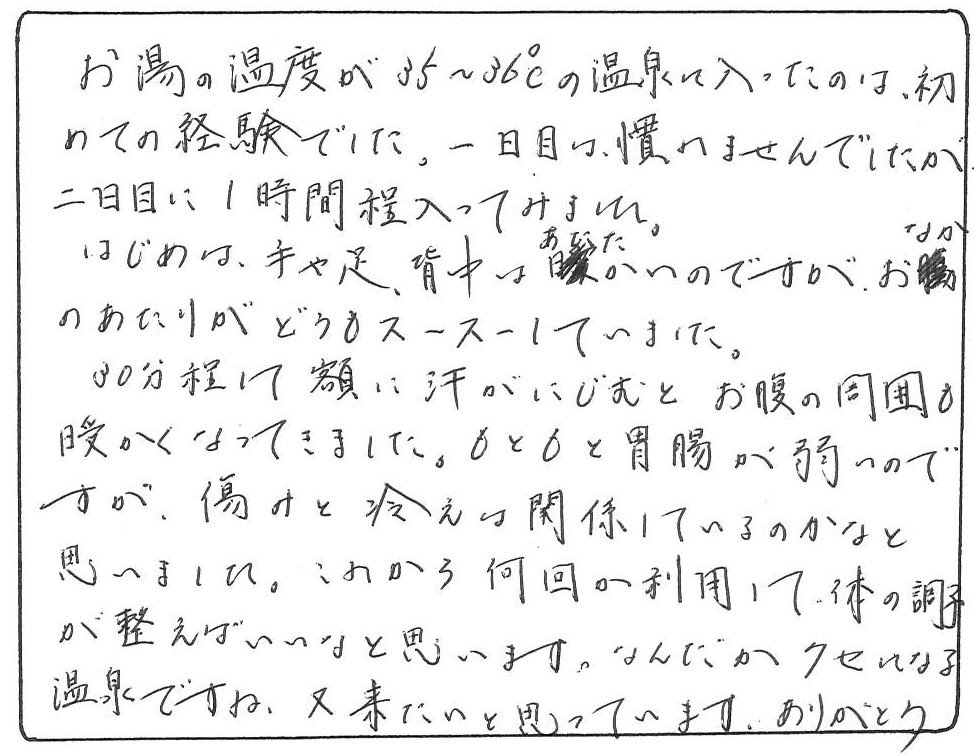 お湯の温度が35~36℃の温泉に入ったのは、初
めての経験でした。一日目は、慣れませんでしたが、
二日目に1時間程入ってみました。
はじめは、手や足、背中は暖(あたた)かいのですが、お腹(なか)
のあたりがどうもスースーしていました。
30分程して額に汗がにじむとお腹の周囲も
暖かくなってきました。もともと胃腸が弱いので
すが、傷みと冷えは関係しているのかなと
思いました。これから何回か利用して、体の調子
が整えばいいなと思います。なんだかクセになる
温泉ですね、又来たいと思っています、ありがとう